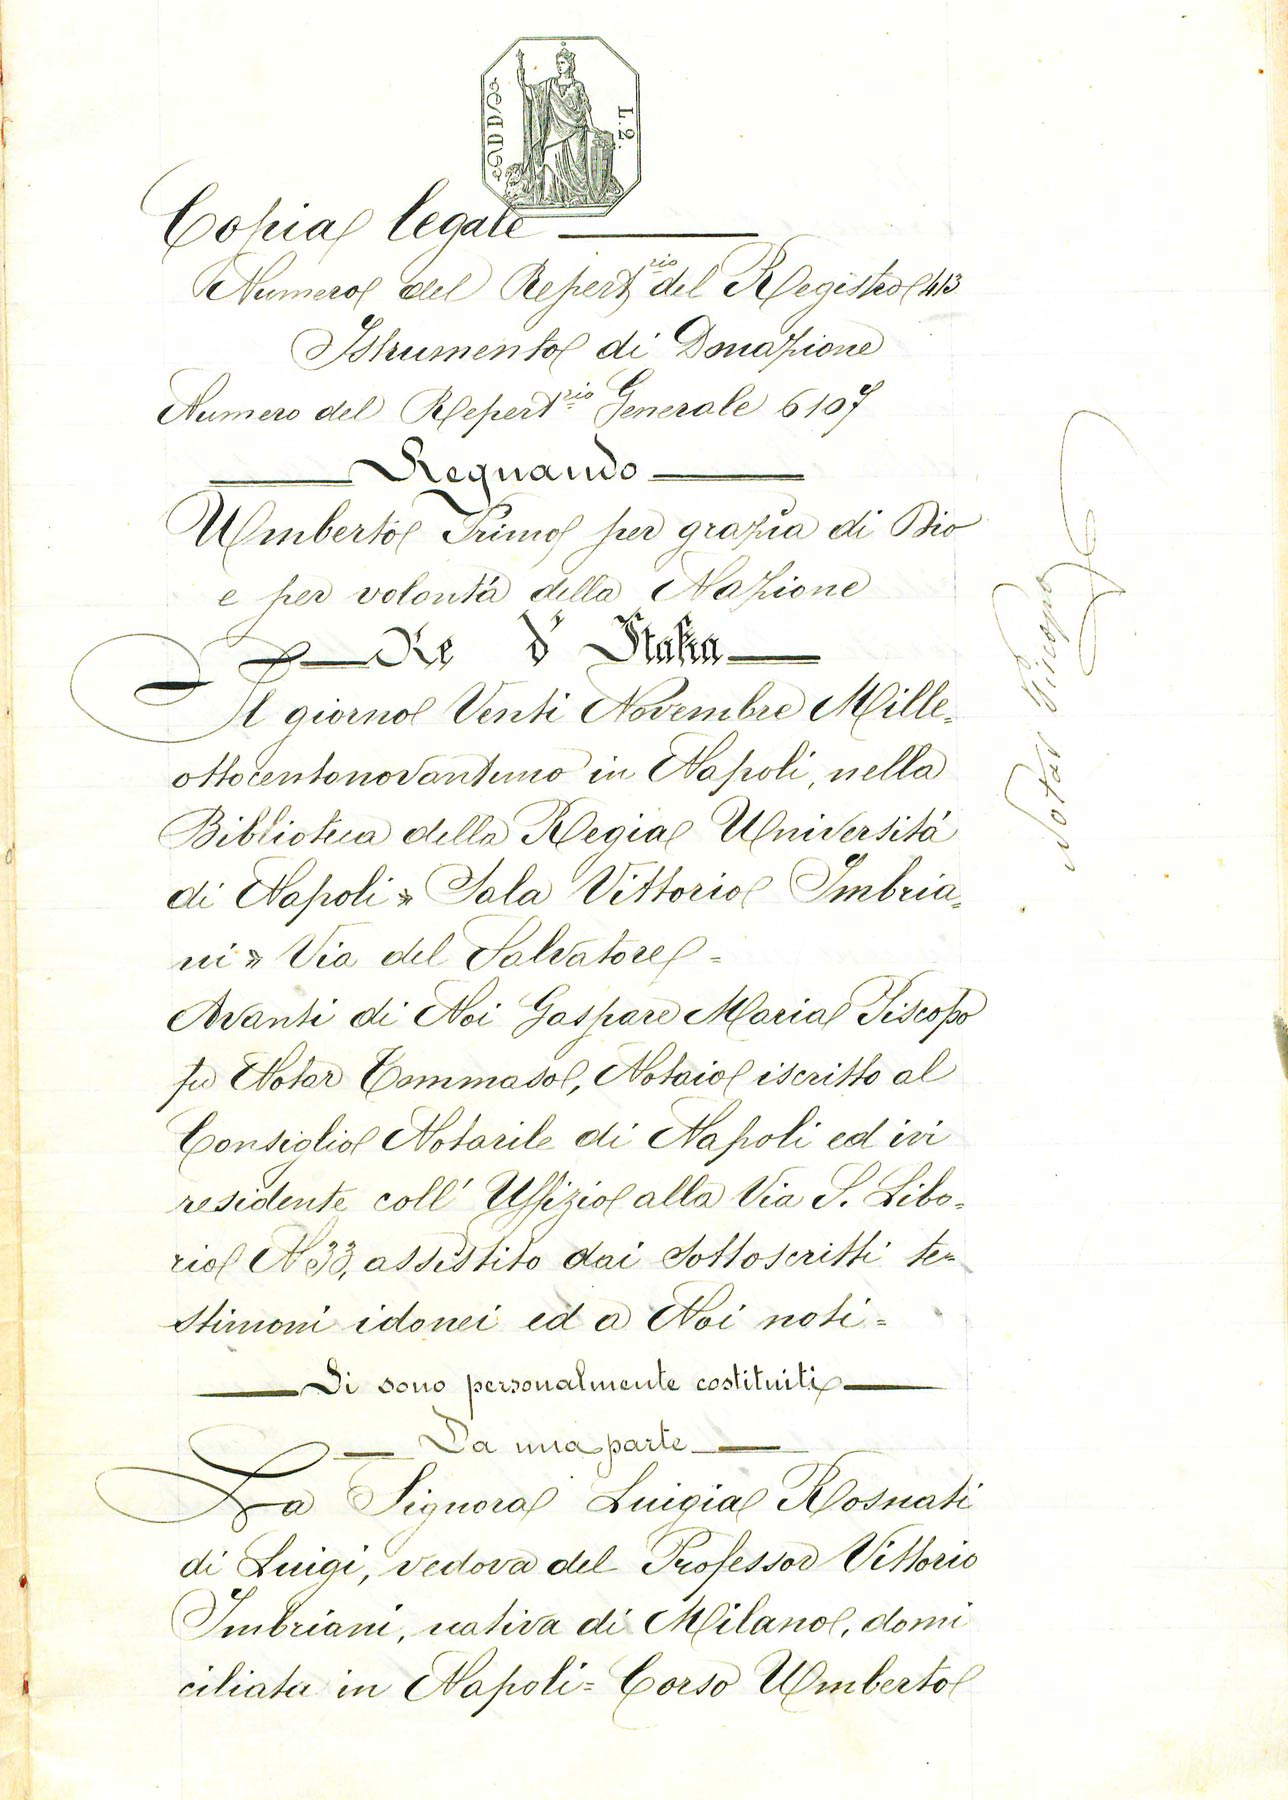 L. 2.
DUE
Copia legale
Numero del Repert.rio del Registro 413
Istrumento di Donazione
Numero del Repert.rio Generale 6107
Regnando
Umberto Primo per grazia di Dio
e per volontá della Nazione
Re d'Italia
Il giorno Venti Novembre Mille=
ottocentonovantuno in Napoli, nella
Biblioteca della Regia Universitá
di Napoli » Sala Vittorio Imbria=
ni » Via del Salvatore =
Avanti di Noi Gaspare Maria Piscopo
fu Notar Tommaso, Notaio iscritto al
Consiglio Notarile di Napoli ed ivi
residente coll' Uffizio alla Via S. Libo=
rio N 33, assistito dai sottoscritti te=
stimoni idonei ed a Noi noti =
Si sono personalmente costituiti
Da una parte
La Signora Luigia Rosnati
di Luigi, vedova del Professor Vittorio
Imbriani, nativa di Milano, domi
ciliata in Napoli = Corso Umberto
Notar Piscopo